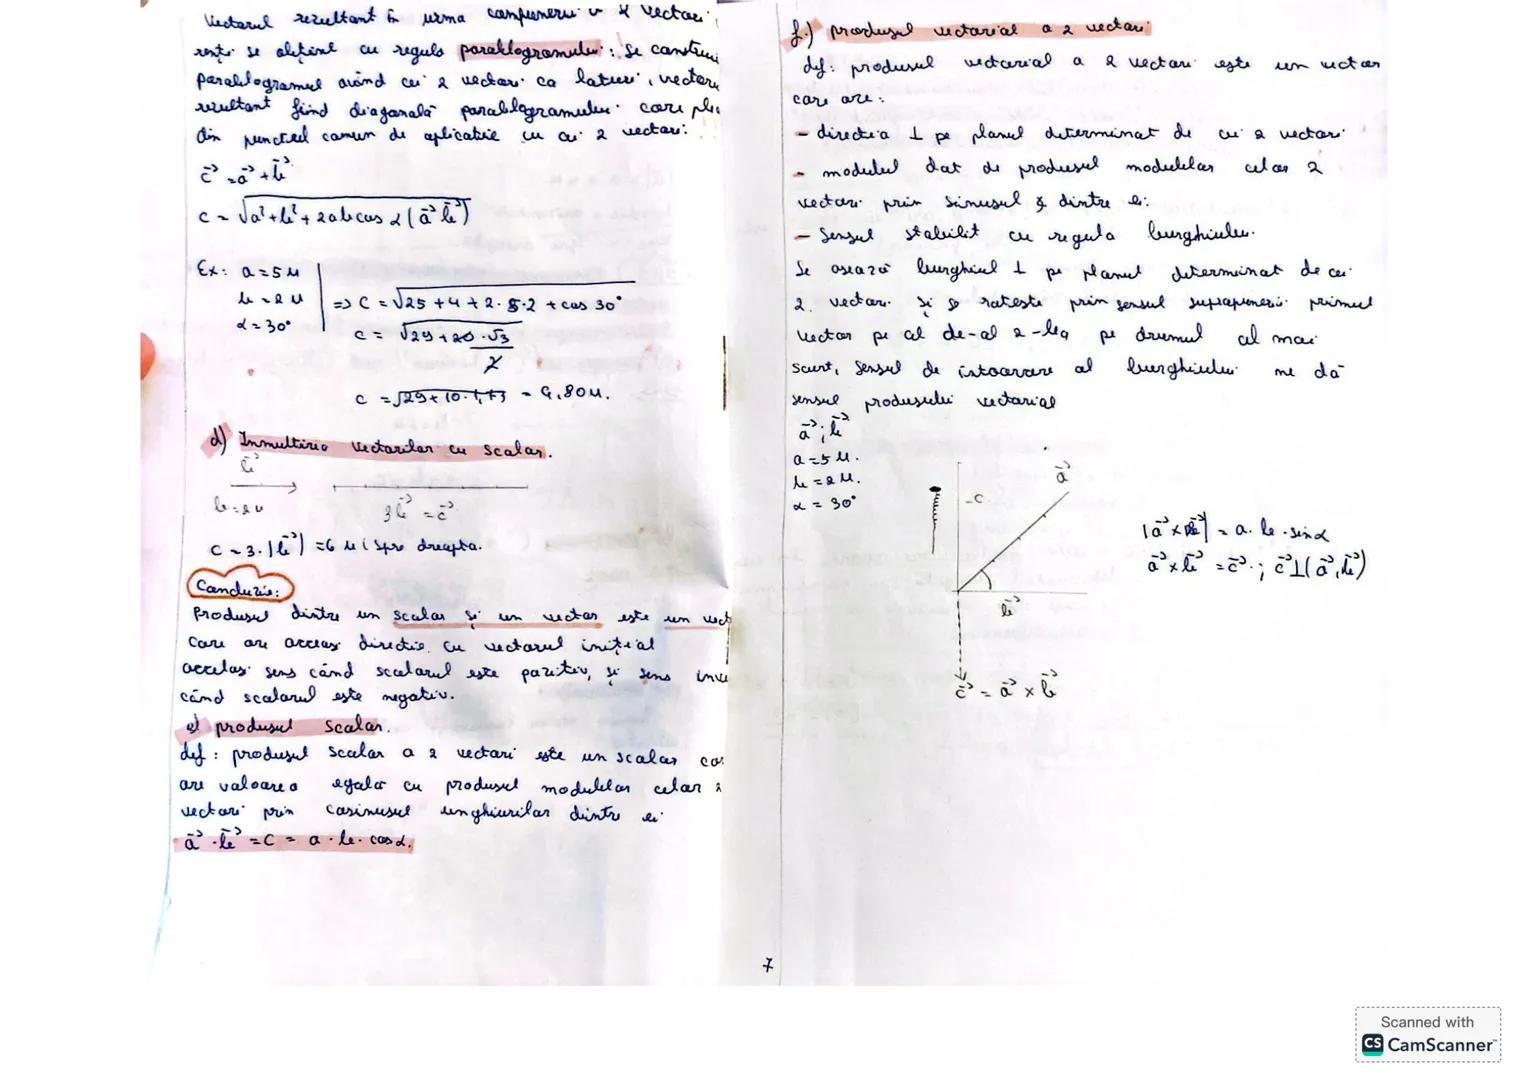 Vectorul rezultant în urma compunerii a 2 vectori
renți se obține cu regula paralelogramului: Se construi
paralelogramul având cei 2 vectori ca laturi, vectoru
rezultant fiind diagonala paralelogramului care ple
din punctul comun de aplicație cu cei 2 vectori.
c⃗ = a⃗ + b⃗
c = √a²+b²+2ab cos α (a⃗ b⃗)
Ex: a = 5u
b = 2u
α = 30°
=> c = √25 + 4 + 2·5·2 + cos 30°
c = √29+20·√3/2
c = √29+10·1,73 = 6,80u.
d) Inmultirea vectorilor cu scalar.
b⃗
b=2u
3b⃗ = c⃗
c = 3·|b⃗| = 6u (spre dreapta.
Concluzie:
Produsul dintre un scalar și un vector este un vect
care are aceeas direcție cu vectorul inițial
acelas sens când scalarul este pozitiv, și sens inve
când scalarul este negativ.
e) produsul scalar.
def: produsul scalar a 2 vectori este un scalar ca
are valoarea egala cu produsul modulelor celor 2
vectori prin cosinusul unghiurilor dintre ei
a⃗ · b⃗ = c = a · b · cos α.
f.) produsul vectorial a 2 vectori
def: produsul vectorial a 2 vectori este un vector
care are:
- directia ⊥ pe planul determinat de cei 2 vectori
- modulul dat de produsul modulelor celor 2
vectori prin sinusul ∡ dintre ei
- Sensul stabilit cu regula burghiului.
Se asează burghiul ⊥ pe planul determinat de cei
2 vectori și se rotește prin sensul suprapunerii primul
vector pe al de-al 2-lea pe drumul cel mai
scurt, sensul de intoarcere al burghiului ne dă
sensul produsului vectorial
a⃗; b⃗
a = 5u.
b = 2u.
α = 30°
-c
a⃗
b⃗
c⃗ = a⃗ × b⃗
|a⃗ × b⃗| = a · b · sin α
a⃗ × b⃗ = c⃗ ; c⃗ ⊥ (a⃗, b⃗)
7
Scanned with
CS CamScanner